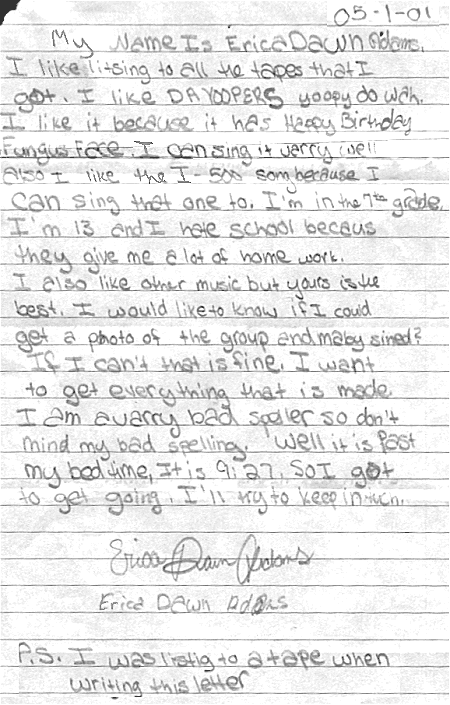 05-1-01
My Name Is Erica Dawn Adams.
I like litsing to all the tapes that I
got. I like DA YOOPERS yoopy do wah.
I like it because it has Happy Birthday
Fungus Face. I can sing it verry well
also I like the I-500 som because I
can sing that one to. I'm in the 7th grade.
I'm 13 and I hate school becaus
they give me a lot of home work.
I also like other music but yours is the
best. I would like to know if I could
get a photo of the group and maby sined?
If I can't that is fine. I want
to get everything that is made.
I am a varry bad spaler so don't
mind my bad spelling. Well it is Past
my bed time, It is 9:27, So I got
to get going. I'll try to keep in tuch.
Erica Dawn Adams
Erica Dawn Adams
P.S. I was listig to a tape when
writing this letter